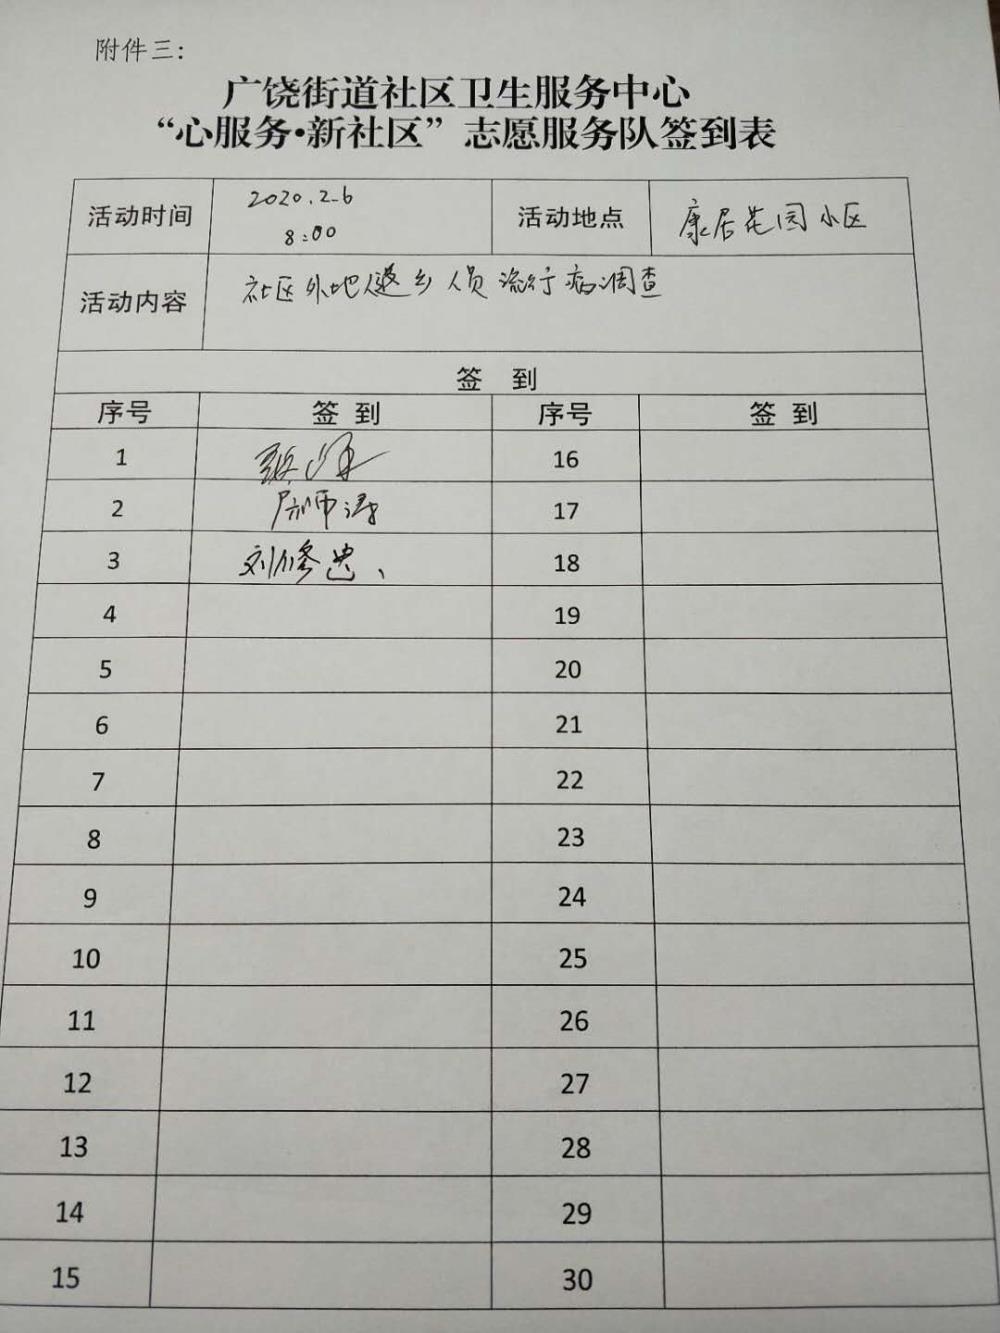 附件三：
广饶街道社区卫生服务中心
“心服务•新社区”志愿服务队签到表
活动时间 2020.2.6 8:00 活动地点 康居花园小区
活动内容 社区外地返乡人员流行病调查
签 到
序号 签 到 序号 签 到
1 16
2 17
3 刘修忠 18
4 19
5 20
6 21
7 22
8 23
9 24
10 25
11 26
12 27
13 28
14 29
15 30